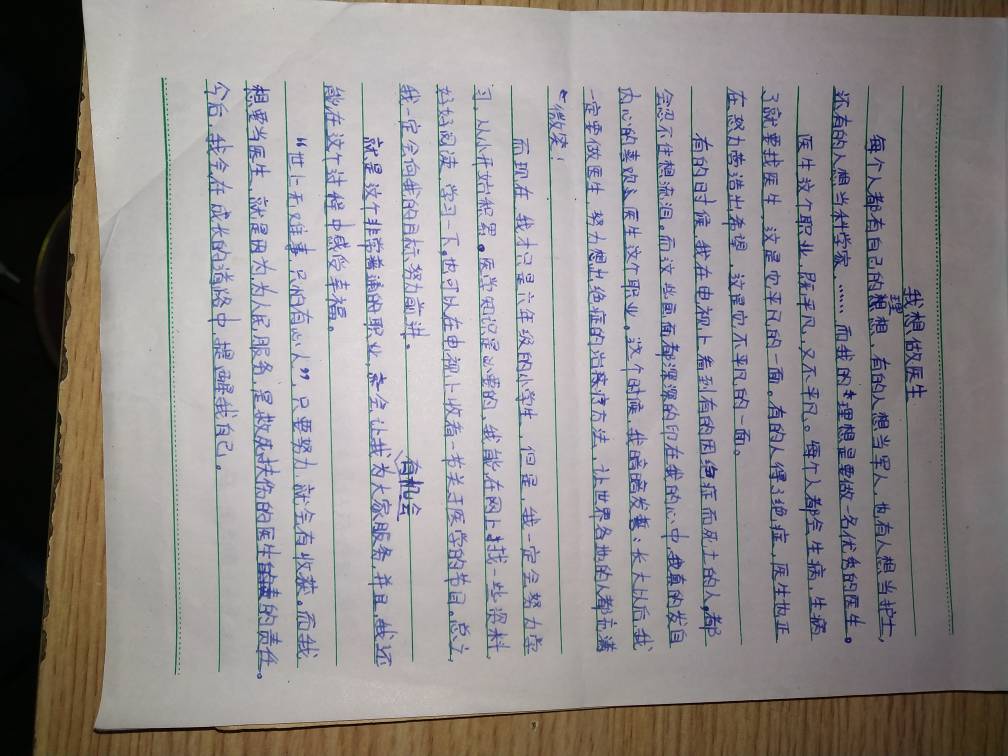 我想做医生
每个人都有自己的理想，有的人想当军人，也有人想当护士，
还有的人想当科学家……而我的理想是要做一名优秀的医生。
医生这个职业，既平凡，又不平凡。每个人都会生病，生病
了就要找医生，这是它平凡的一面。有的人得了绝症，医生也正
在努力营造出希望，这是它不平凡的一面。
有的日时候，我在电视上看到有的因绝症而死亡的人，都
会忍不住想流泪。而这些画面都深深的印在我的心中，我真的发自
内心的喜欢医生这个职业。这个时候，我暗暗发誓：长大以后，我
一定要做医生，努力想出绝症的治疗方法，让世界各地的人都充满
微笑！
而现在，我才只是六年级的小学生，但是，我一定会努力学
习，从小开始积累。医学知识是必要的，我能在网上找一些资料，
好好阅读，学习一下。也可以在电视上收看一书关于医学的节目。总之，
我一定会向我的目标，努力前进。
就是这个非常普通的职业，会让我有机会为大家服务，并且，我还
能在这个过程中感受幸福。
“世上无难事，只怕有心人”，只要努力，就会有收获。而我
想要当医生，就是因为为人民服务，是救死扶伤的医生的责任。
今后，我会在成长的道路中，提醒我自己。